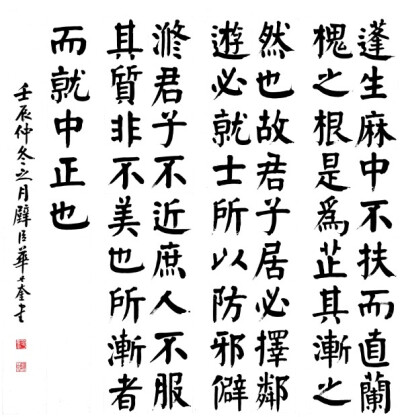 蓬生麻中不扶而直蘭
槐之根是爲芷其漸之
然也故君子居必擇鄰
遊必就士所以防邪僻
滫君子不近庶人不服
其質非不美也所漸者
而就中正也
壬辰仲冬之月璧臣華世奎書